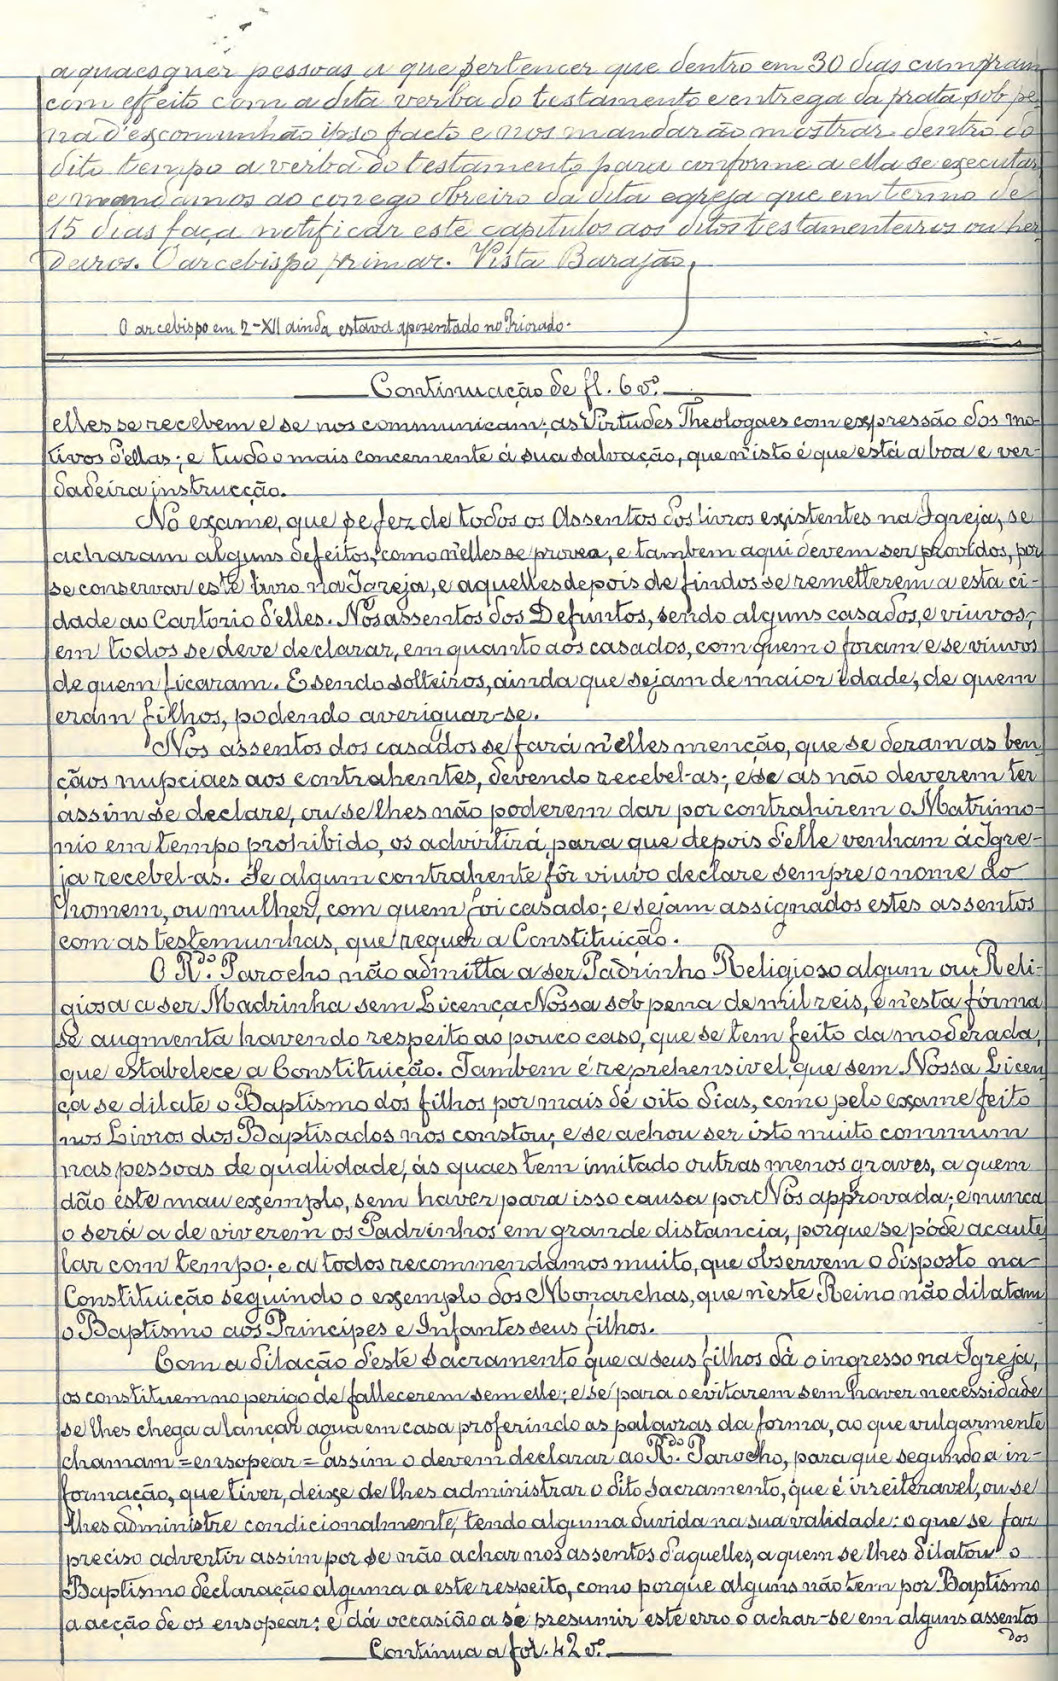 a quaesquer pessoas a que pertencer que dentro em 30 dias cumpram
com effeito com a dita verba do testamento e entrega da prata sob pe-
na d'excomunhão ipso facto e nos mandarão mostrar dentro do
dito tempo a verba do testamento para conforme a ella se executar
e mandamos ao conego obreiro da dita egreja que em termo de
15 dias faça notificar este capitulos aos ditos testamenteiros ou her
deiros. O arcebispo primar. Vista Barajão
O arcebispo em 2-XII ainda estava aposentado no Priorado.
Continuação de fl. 6 vº.
elles se recebem e se nos communicam; as Virtudes Theologaes com expressão dos mo-
tivos d'ellas; e tudo o mais concernente á sua salvação, que n'isto é que está a boa e ver-
dadeira instrucção.
No exame, que se fez de todos os Assentos dos livros existentes na Igreja, se
acharam alguns defeitos, como n'elles se provea, e tambem aqui devem ser providos, por
se conservar este livro na Igreja, e aquelles depois de findos se remetterem a esta ci-
dade ao Cartorio d'elles. Nos assentos dos Defuntos, sendo alguns casados, e viuvos,
em todos se deve declarar, em quanto aos casados, com quem o foram e se viuvos
de quem ficaram. E sendo solteiros, ainda que sejam de maior idade, de quem
eram filhos, podendo averiguar-se.
Nos assentos dos casados se fará n'elles menção, que se deram as ben
çãos nupciaes aos contrahentes, devendo recebel-as; e se as não deverem ter
assim se declare, ou se lhes não poderem dar por contrahirem o Matrimo-
nio em tempo prohibido, os advirtirá para que depois d'elle venham á Igre-
ja recebel-as. Se algum contrahente fôr viuvo declare sempre o nome do
homem, ou mulher, com quem foi casado; e sejam assignados estes assentos
com as testemunhas, que requer a Constituição.
O R.do Parocho não admitta a ser Padrinho Religioso algum ou Reli-
giosa a ser Madrinha sem Licença Nossa sob pena de mil reis, e n'esta fórma
se augmenta havendo respeito ao pouco caso, que se tem feito da moderada,
que estabelece a Constituição. Tambem é reprehensivel, que sem Nossa Licen
ça se dilate o Baptismo dos filhos por mais de oito dias, como pelo exame feito
nos Livros dos Baptisados nos constou; e se achou ser isto muito commum
nas pessoas de qualidade, ás quaes tem imitado outras menos graves, a quem
dão este mau exemplo, sem haver para isso causa por Nós approvada; e nunca
o será a de viverem os Padrinhos em grande distancia, porque se póde acaute
lar com tempo; e a todos recommendamos muito, que observem o disposto na
Constituição seguindo o exemplo dos Monarchas, que n'este Reino não dilatam
o Baptismo aos Principes e Infantes seus filhos.
Com a dilação d'este Sacramento que a seus filhos dá o ingresso na Igreja,
os constituem no perigo de fallecerem sem elle; e se para o evitarem sem haver necessidade
se lhes chega a lançar agua em casa proferindo as palavras da forma, ao que vulgarmente
chamam = ensopear = assim o devem declarar ao R.do Parocho, para que segundo a in-
formação, que tiver, deixe de lhes administrar o dito Sacramento, que é irreiteravel, ou se
lhes administre condicionalmente, tendo alguma duvida na sua validade: o que se faz
preciso advertir assim por se não achar nos assentos d'aquelles, a quem se lhes dilatou o
Baptismo declaração alguma a este respeito, como porque alguns não tem por Baptismo
a acção de os ensopear: e dá occasião a se presumir este erro o achar-se em alguns assentos
dos
Continua a fol. 42 vº.